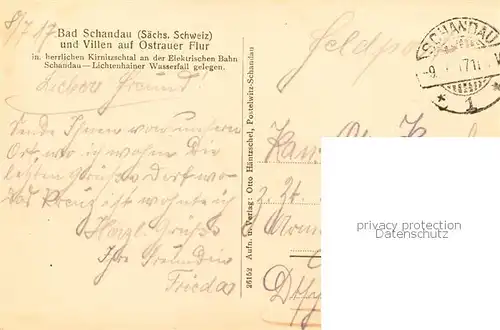 8/7 17
Bad Schandau (Sächs. Schweiz)
und Villen auf Ostrauer Flur
in herrlichen Kirnitzschtal an der Elektrischen Bahn
Schandau—Lichtenhainer Wasserfall gelegen.
Lieber Freund!
Sende Ihnen von unsern
Ort wo ich wohn die
besten Grüße Dort wo
das Kreuz ist wohnte ich
Herzl. Grüße
Ihre Freundin
Frieda
26152 Aufn. u. Verlag: Otto Häntzschel, Postelwitz-Schandau
Feldpost
SCHANDAU
1
z. Zt.
privacy protection
Datenschutz